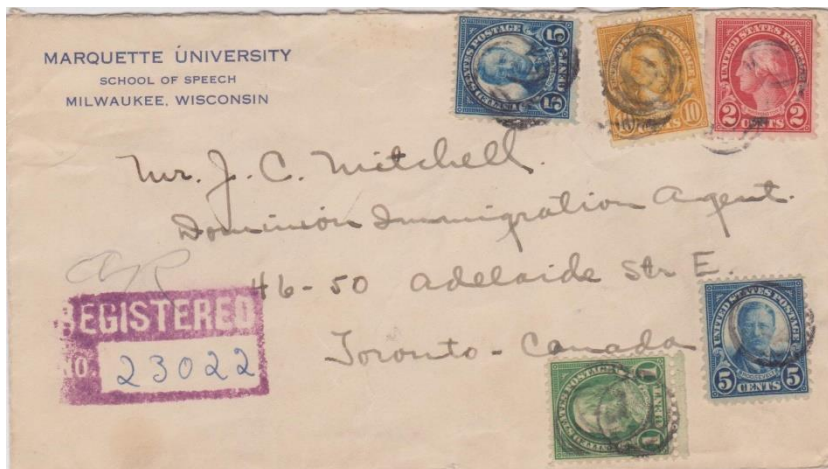 MARQUETTE UNIVERSITY
SCHOOL OF SPEECH
MILWAUKEE, WISCONSIN
UNITED STATES POSTAGE
5 CENTS 5
10
UNITED STATES POSTAGE
2 CENTS 2
Mr. J. C. Mitchell.
Dominion Immigration Agent.
46-50 Adelaide Str E.
Toronto - Canada
REGISTERED
NO. 23022
UNITED STATES POSTAGE
5 CENTS 5
UNITED STATES POSTAGE
1 CENT 1